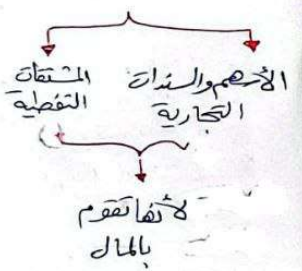 الأسهم والسندات
التجارية
المشتقات
النفطية
لأنها تقوم
بالمال